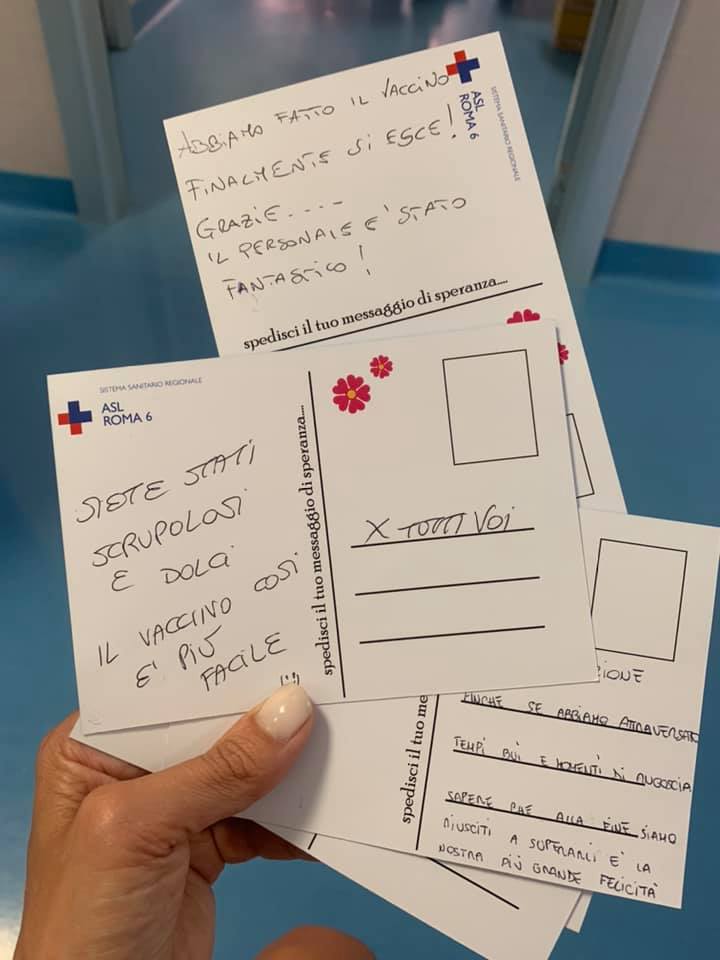 ABBIAMO FATTO IL VACCINO
FINALMENTE SI ESCE!
GRAZIE....
IL PERSONALE E' STATO
FANTASTICO!
ASL
ROMA 6
SISTEMA SANITARIO REGIONALE
spedisci il tuo messaggio di speranza....
SISTEMA SANITARIO REGIONALE
ASL
ROMA 6
SIETE STATI
SCRUPOLOSI
E DOLCI
IL VACCINO COSI
E' PIÙ
FACILE
spedisci il tuo messaggio di speranza....
X TUTTI VOI
spedisci il tuo me
ZIONE
FINCHE SE ABBIAMO ATTRAVERSATO
TEMPI BUI E MOMENTI DI ANGOSCIA
SAPERE CHE ALLA FINE SIAMO
RIUSCITI A SUPERARLI E' LA
NOSTRA PIÙ GRANDE FELICITÀ